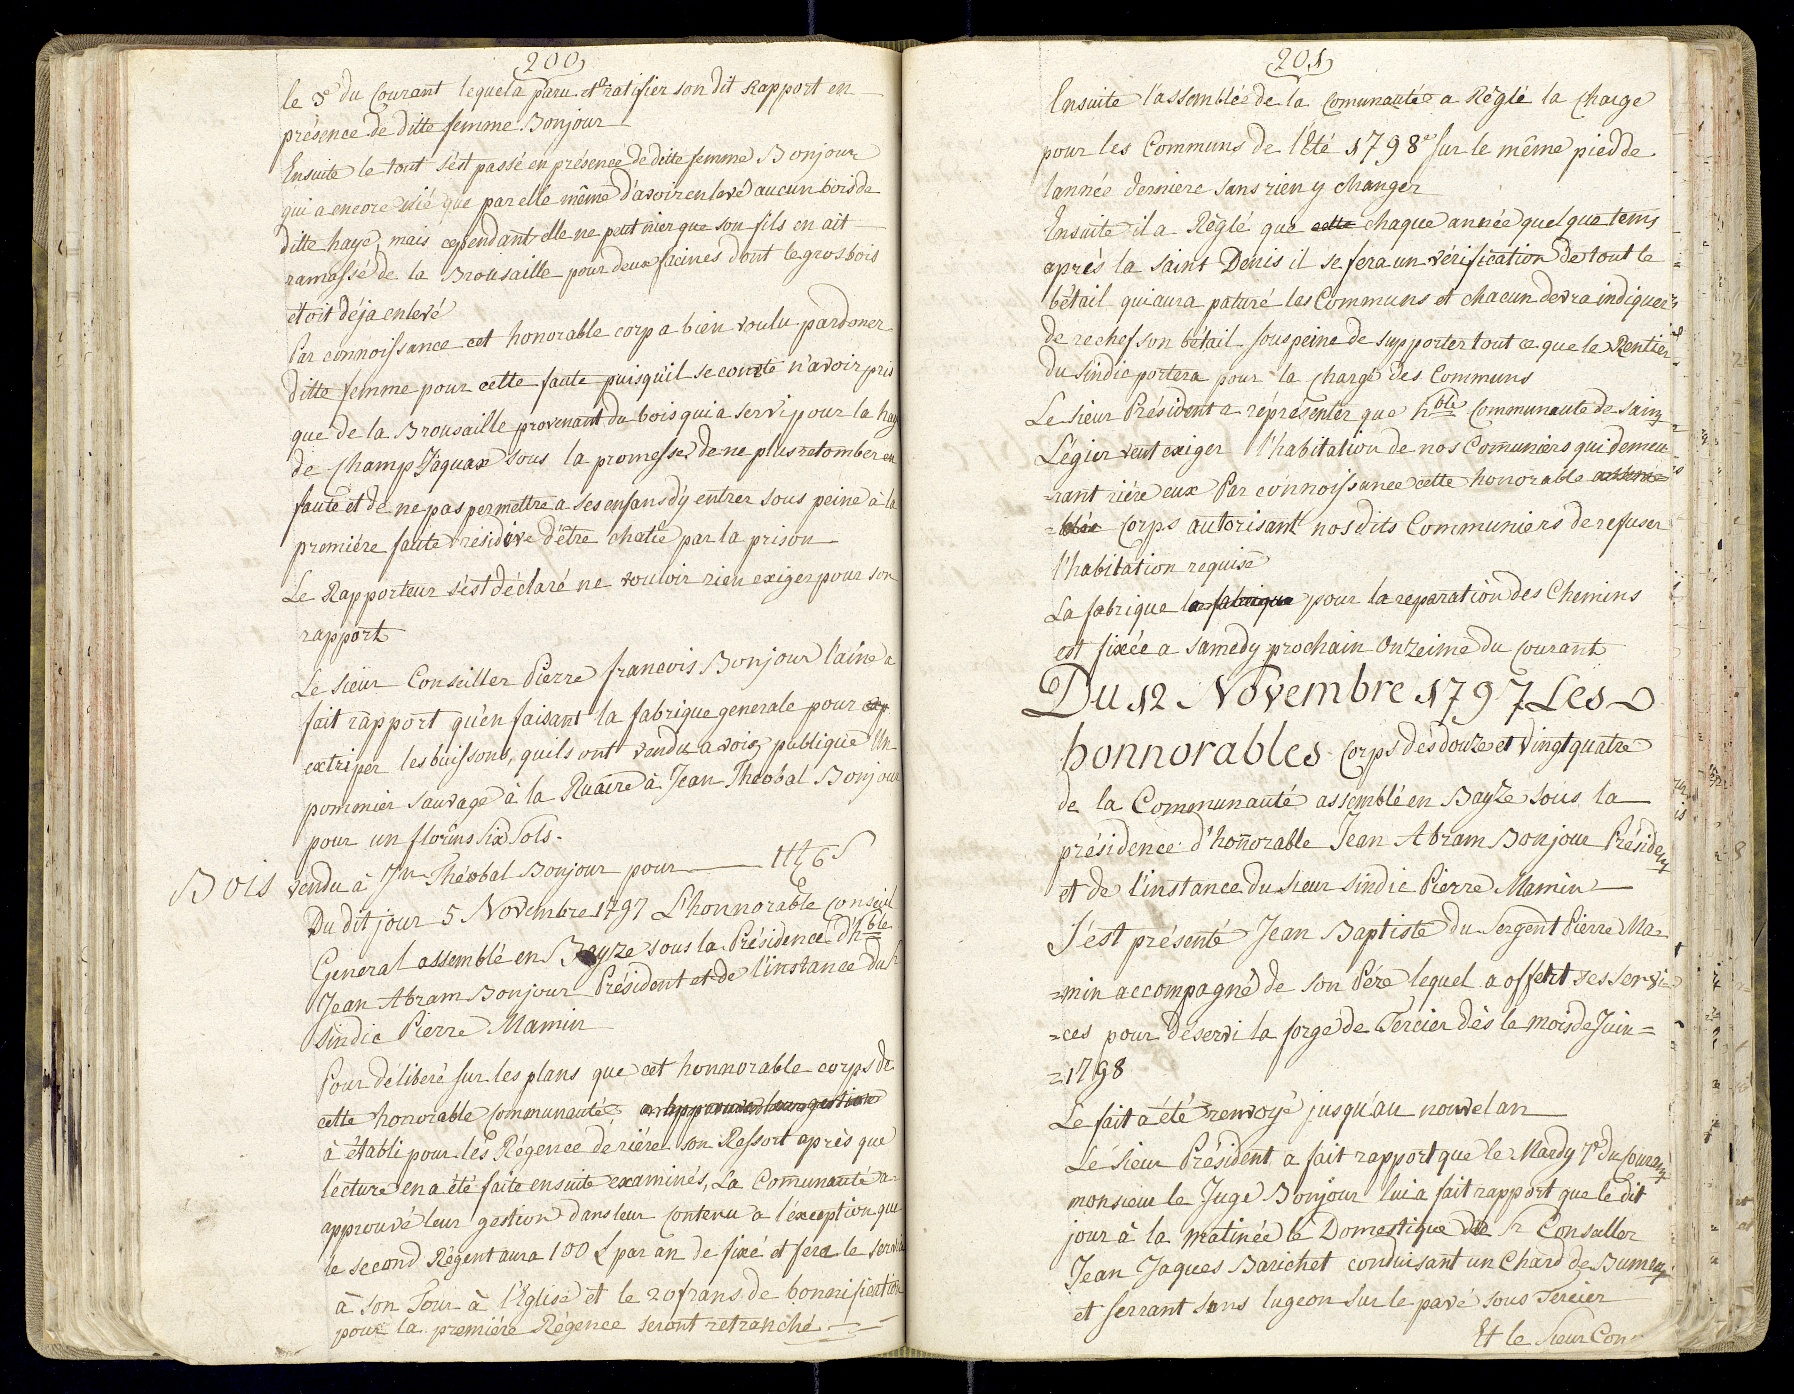 200
le 3e du Courant lequel a paru et ratifier son dit Rapport en
présence de ditte femme Bonjour
Ensuite le tout s'est passé en présence de ditte femme Bonjour
qui a encore nié que par elle même d'avoir enlevé aucun bois de
ditte haye, mais cependant elle ne peut nier que son fils en ait
ramassé de la Brousaille pour deux facines dont le gros bois
étoit déja enlevé
Par connoissance cet honorable corp a bien voulu pardoner
ditte femme pour cette faute puisqu'il se conste n'avoir pris
que de la Brousaille provenant du bois qui a servi pour la hay
de Champ Jaquax sous la promesse de ne plus retomber en
faute et de ne pas permettre a ses enfans d'y entrer sous peine à la
premiére faute résidive d'être chatié par la prison
Le Rapporteur s'est déclaré ne vouloir rien exiger pour son
rapport
Le sieur Conseiller Pierre francois Bonjour l'ainé a
fait rapport qu'en faisant la fabrique generale pour exp
extriper les buissons, quils ont vendu a voix publique Un
pommier sauvage à la Ruaire à Jean Theobal Bonjour
pour un florins six sols.
Bois vendu à Jn Théobal Bonjour pour 1 ₶ 6 S
Du dit jour 5 Novembre 1797 L'honnorable Conseil
General assemblé en Bayze sous la Présidence d'hble
Jean Abram Bonjour Président et de l'instance du Sr
Sindic Pierre Mamin
Pour deliberé sur les plans que cet honnorable corps de
cette honorable communauté a approuver leur gestion
à établi pour les Régence dériére son Ressort aprés que
lecture en a été faite ensuite examinés, La Comunauté a
approuvé leur gestion dans leur contenu a l'éxception que
le second Régent aura 100 L par an de fixé et fera le service
à son Tour à l'Eglise et le 20 frans de bonnification
pour la premiére Régence seront retranché
201
Ensuite l'assemblée de la Comunauté a Réglé la Charge
pour les Communs de l'Eté 1798e sur le même pied de
lannée derniere sans rien y changer
Ensuite il a Réglé que cette chaque année quelque tems
aprés la saint Denis il se fera un vérification de tout le
bétail qui aura paturé les Communs et chacun devra indiquer
de rechef son bétail sous peine de supporter tout ce que le Rentier
du Sindic portera pour la charge des Communs
Le sieur Président a réprésenter que hble Communauté de Sain
Légier veut exiger l'habitation de nos Comuniers qui demeu
=rant riére eux Par connoissance cette honorable assem=
=blée Corps autorisant nosdits Communiers de refuser
l'habitation requise
La fabrique la fabrique pour la reparation des Chemins
est fixée a samedy prochain Onzeime du courant
Du 12 Novembre 1797 Les
honnorables Corps des douze et vingt quatre
de la Communauté assemblé en Bayze sous la
présidence d'honnorable Jean Abram Bonjour Présiden
et de l'instance du sieur Sindic Pierre Mamin
S'est présenté Jean Baptiste du Sergent Pierre Ma=
=min accompagné de son Pére lequel a offert ses servi=
=ces pour déservi la forge de Tercier dès le mois de Juin=
=1798
Le fait a été renvoyé jusqu'au nouvel an
Le sieur Président a fait rapport que le Mardy 7e du Courant
monsieur le Juge Bonjour lui a fait rapport que le dit
jour à la matinée le Domestique de Sr Conseiller
Jean Jaques Barichet conduisant un Chard de Bumen
et serrant sans lugeon sur le pavé sous Tercier
Et le Sieur Con